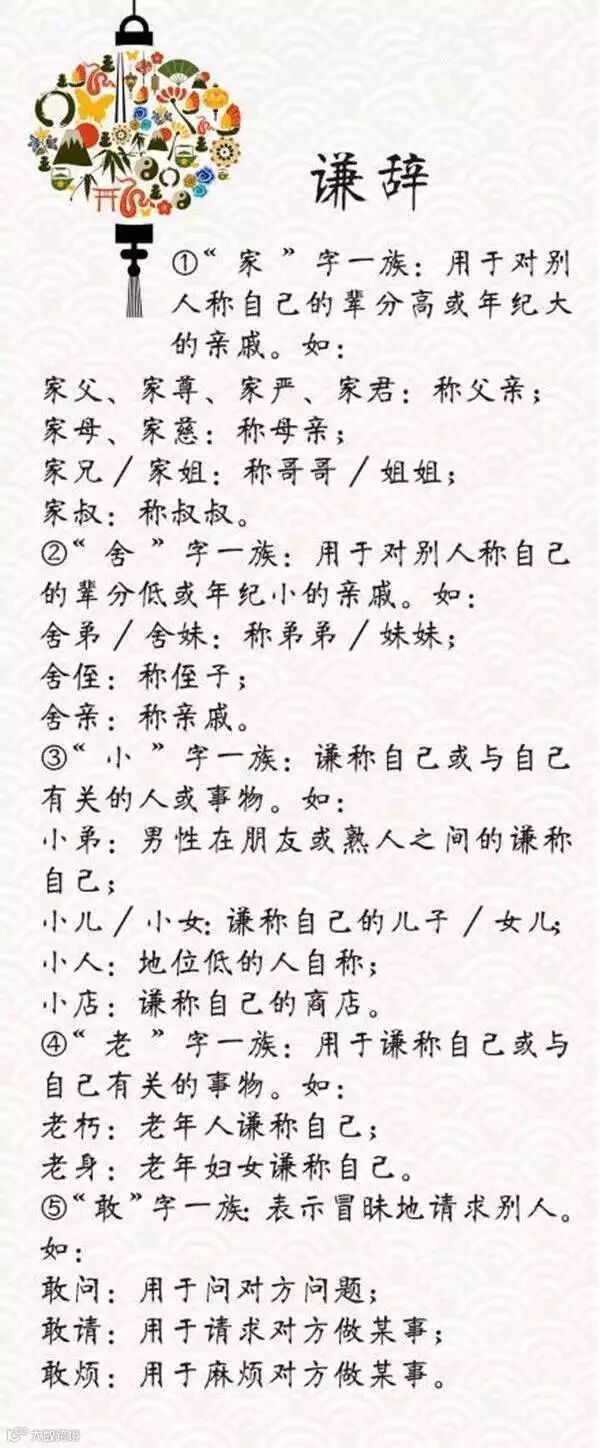 谦辞
①“家”字一族：用于对别
人称自己的辈分高或年纪大
的亲戚。如：
家父、家尊、家严、家君：称父亲；
家母、家慈：称母亲；
家兄／家姐：称哥哥／姐姐；
家叔：称叔叔。
②“舍”字一族：用于对别人称自己
的辈分低或年纪小的亲戚。如：
舍弟／舍妹：称弟弟／妹妹；
舍侄：称侄子；
舍亲：称亲戚。
③“小”字一族：谦称自己或与自己
有关的人或事物。如：
小弟：男性在朋友或熟人之间的谦称
自己；
小儿／小女：谦称自己的儿子／女儿；
小人：地位低的人自称；
小店：谦称自己的商店。
④“老”字一族：用于谦称自己或与
自己有关的事物。如：
老朽：老年人谦称自己；
老身：老年妇女谦称自己。
⑤“敢”字一族：表示冒昧地请求别人。
如：
敢问：用于问对方问题；
敢请：用于请求对方做某事；
敢烦：用于麻烦对方做某事。